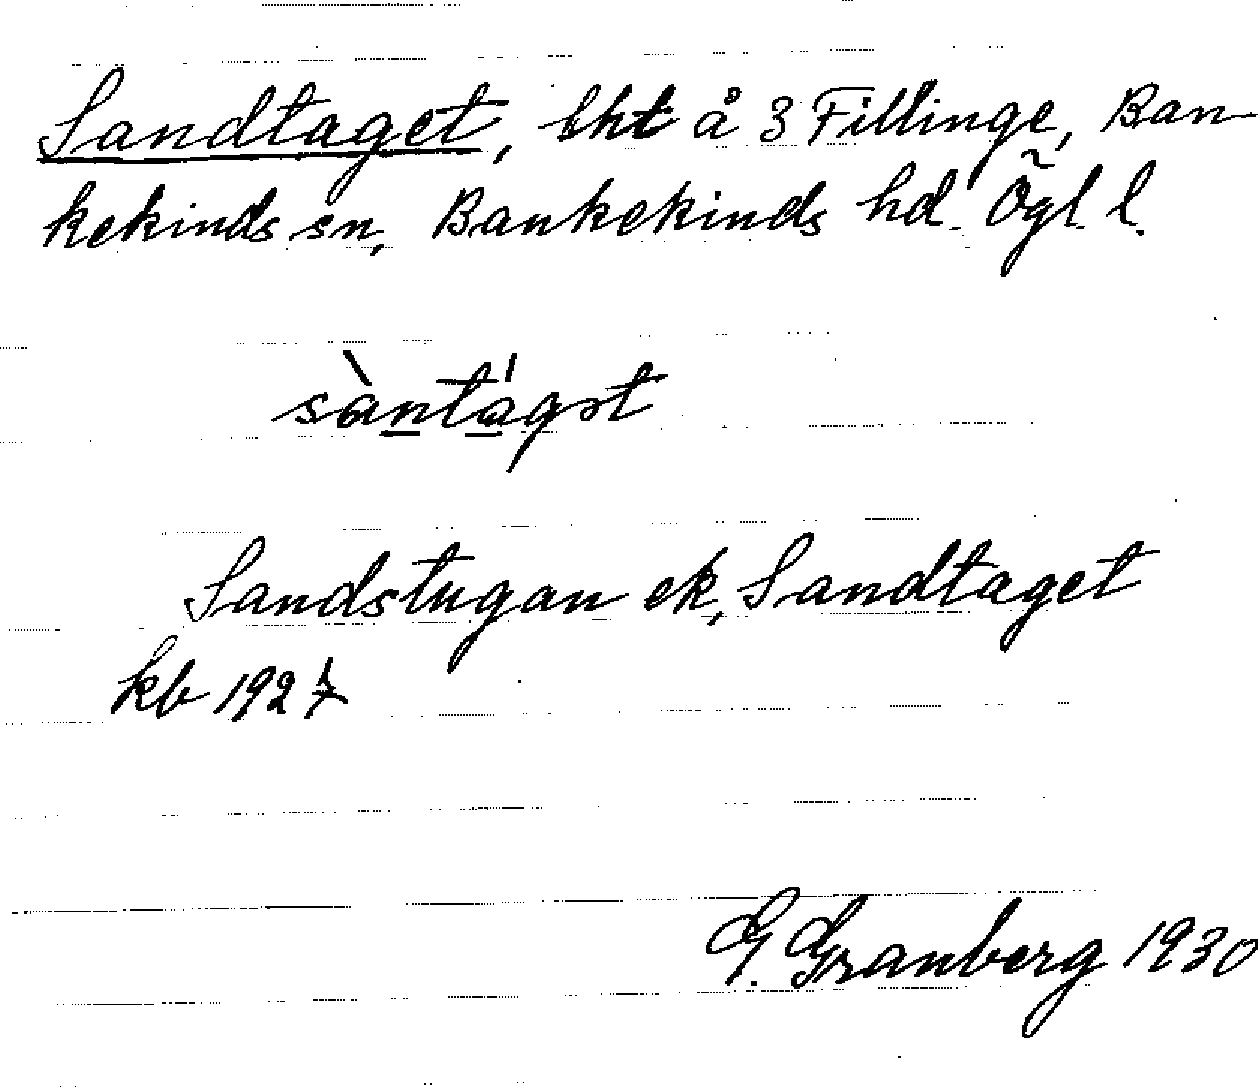 Sandtaget, lht å 3 Fillinge, Ban-
kekinds sn, Bankekinds hd. Ögl l.
sàntágət
Sandstugan ek, Sandtaget
kb 1927
G. Granberg 1930